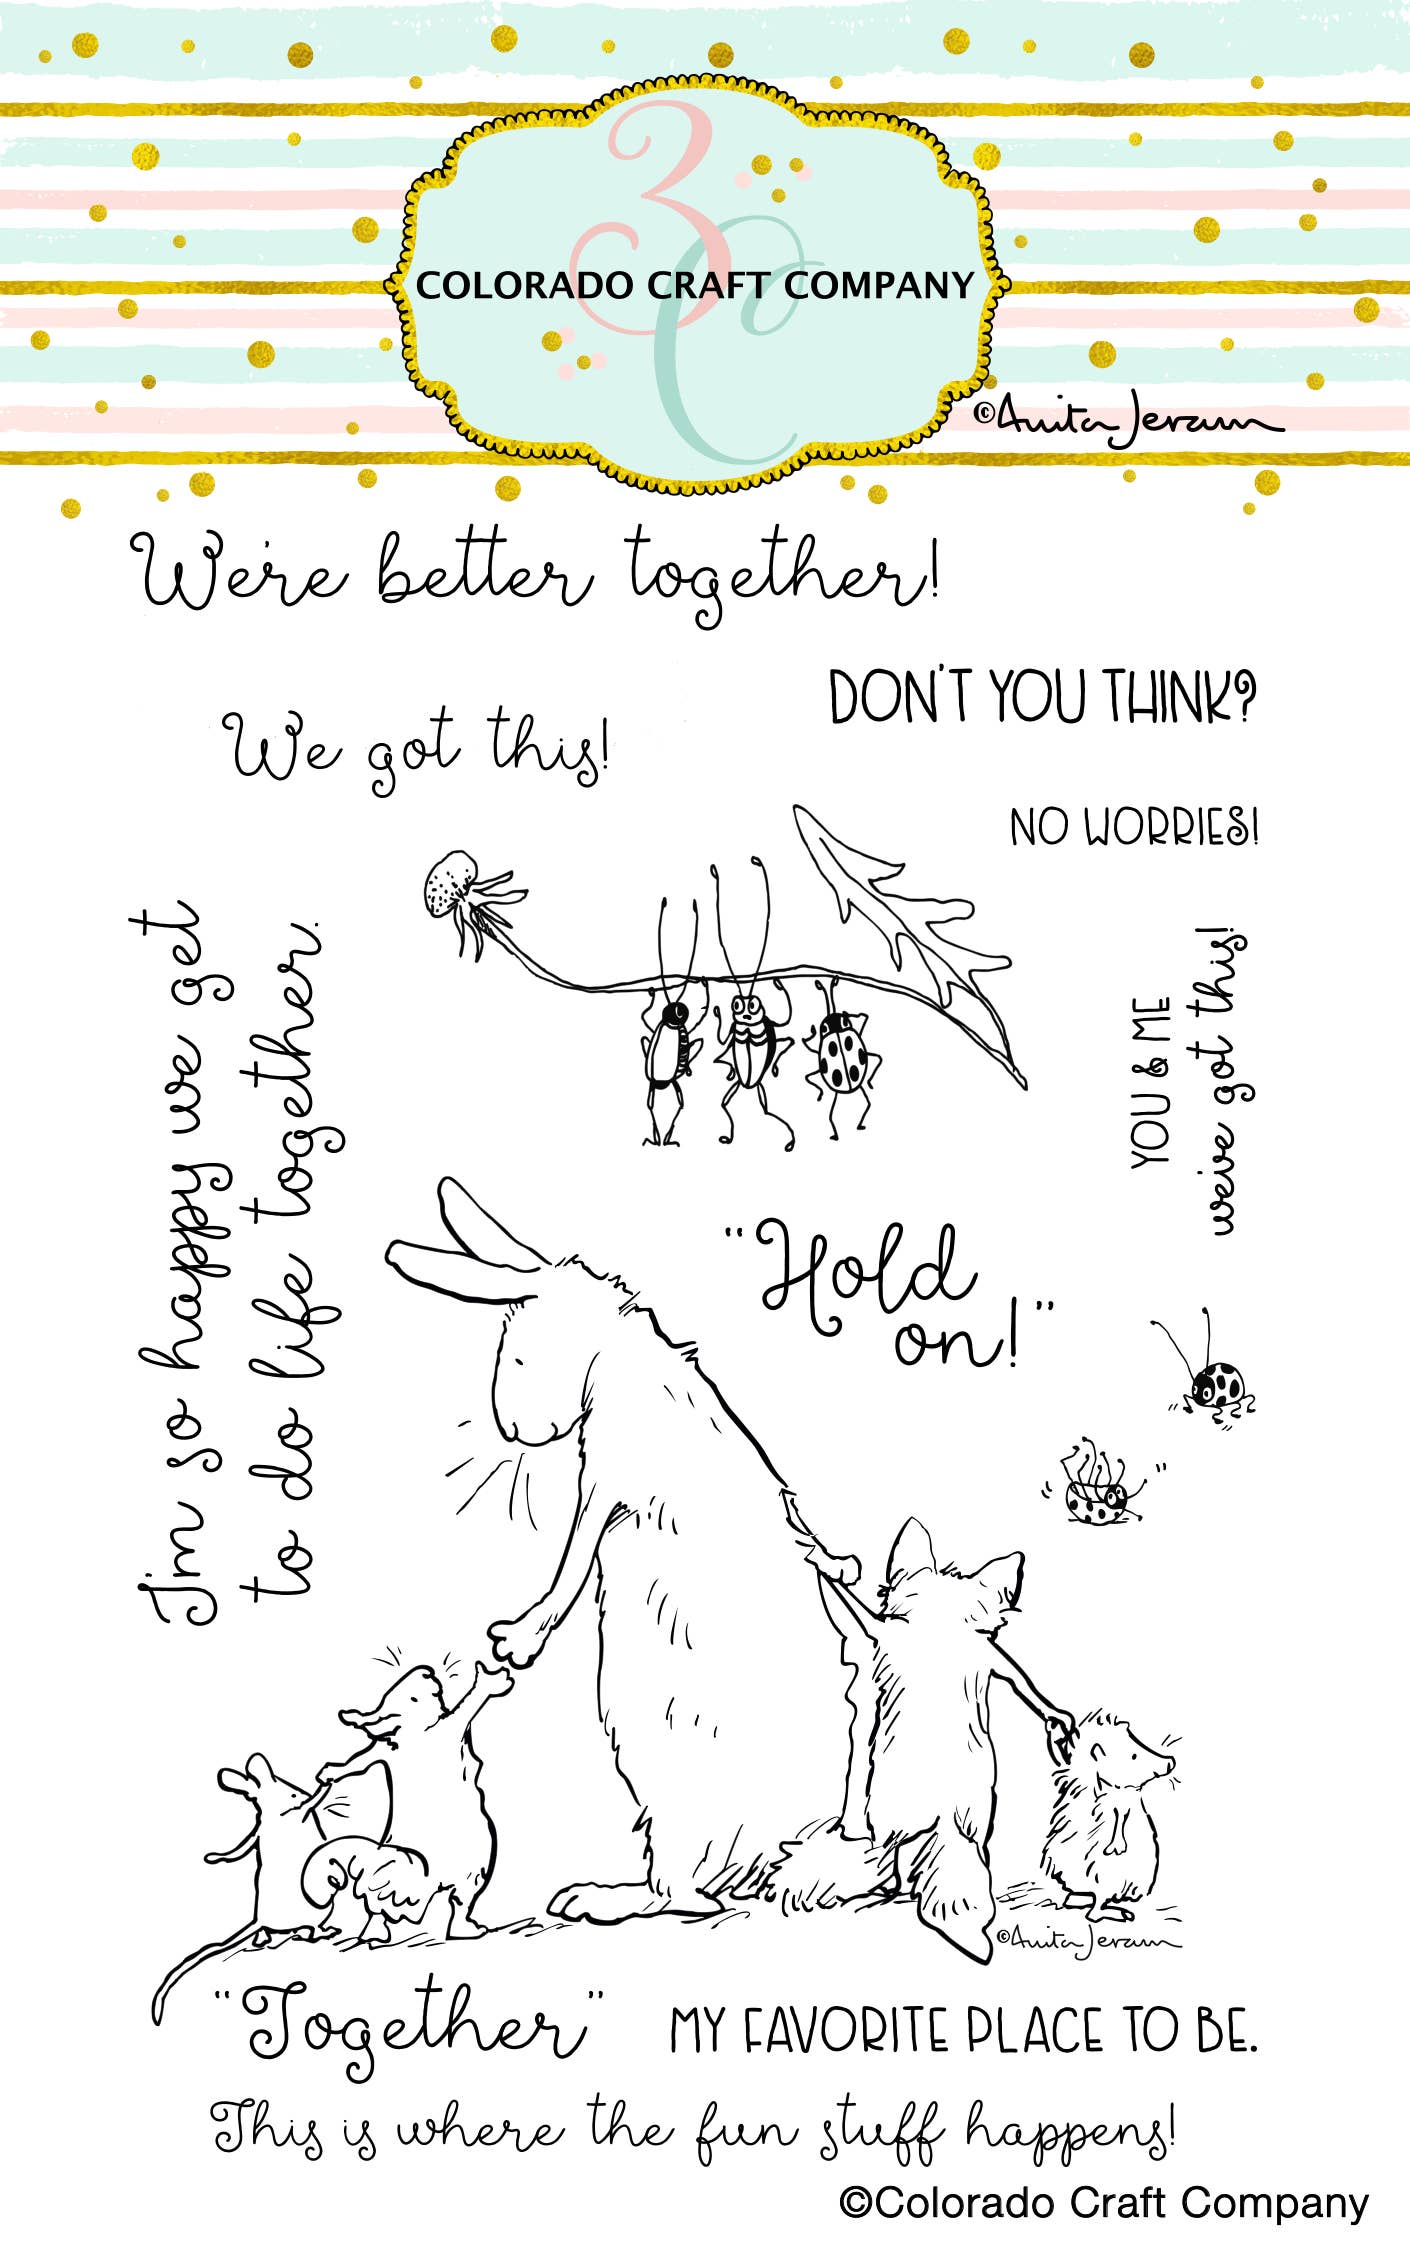 3C
COLORADO CRAFT COMPANY
©Anita Jeram
We're better together!
DON'T YOU THINK?
We got this!
NO WORRIES!
I'm so happy we get
to do life together.
YOU & ME
we've got this!
"Hold
on!"
©Anita Jeram
"Together"
MY FAVORITE PLACE TO BE.
This is where the fun stuff happens!
©Colorado Craft Company